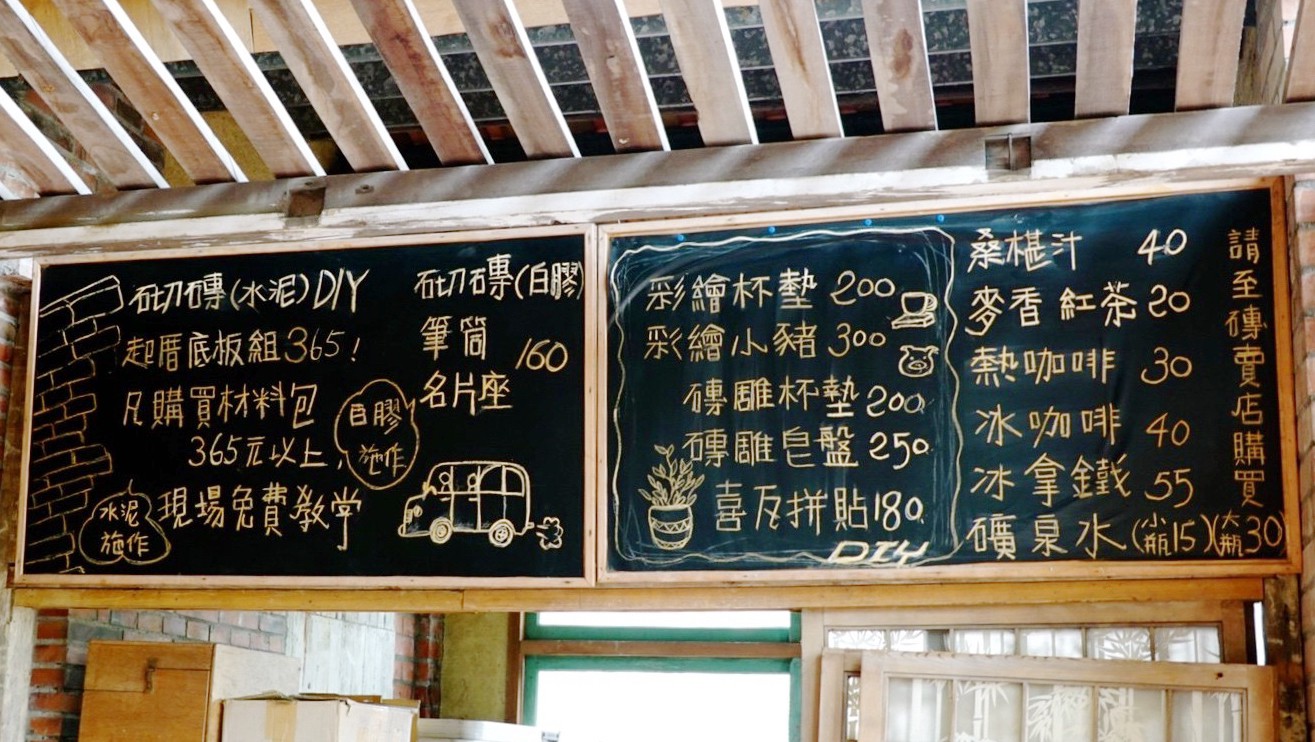 砌磚(水泥)DIY
起厝底板組365!
凡購買材料包
365元以上,
現場免費教学
水泥
施作
砌磚(白膠)
筆筒
160
名片座
白膠
施作
彩繪杯墊 200
彩繪小豬 300
磚雕杯墊 200
磚雕皂盤 250
喜瓦拼貼 180
DIY
桑椹汁 40
麥香紅茶 20
熱咖啡 30
冰咖啡 40
冰拿鐵 55
礦泉水(小瓶15)(大瓶30)
請至磚賣店購買